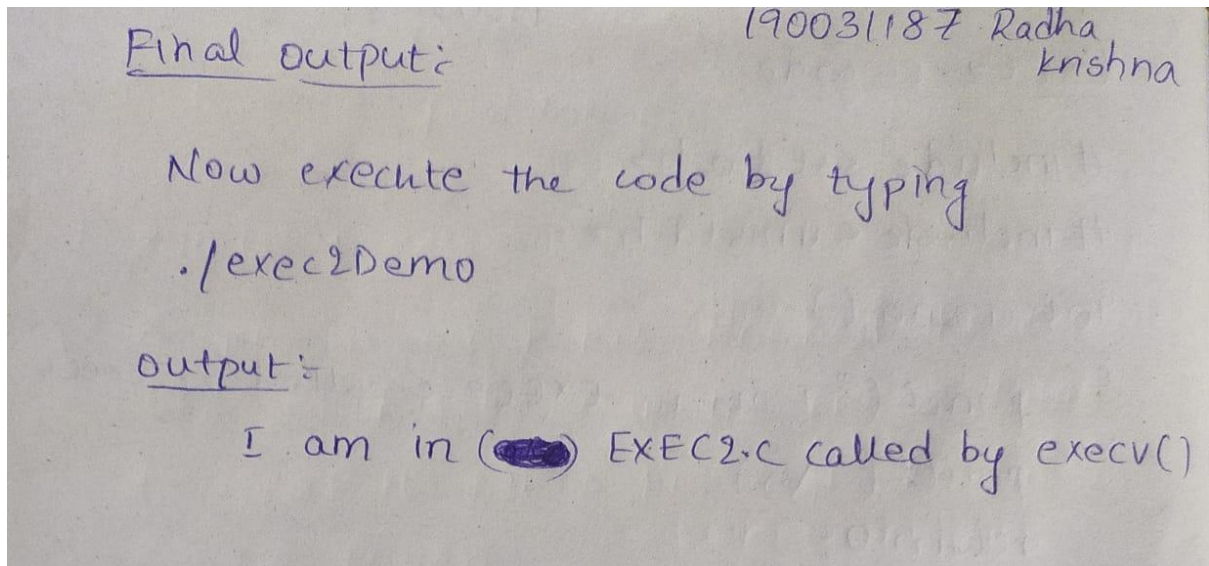 190031187 Radha
krishna
Final output:
Now execute the code by typing
./exec2Demo
output:-
I am in () EXEC2.C called by execv()